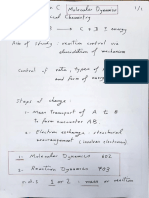 C Molecular Dynamics 1/2
Chemistry
→ C + D ± energy
Aim of study : reaction control via elucidation of mechanism
control of rates, types of
and form of energy
Steps of change
1. Mass Transport of A to B
to form encounter AB.
2. Electron exchange, structural
rearrangement
1- Molecular Dynamics 602
2- Reaction Dynamics 703
r.d.s 1 or 2 : mass or reaction